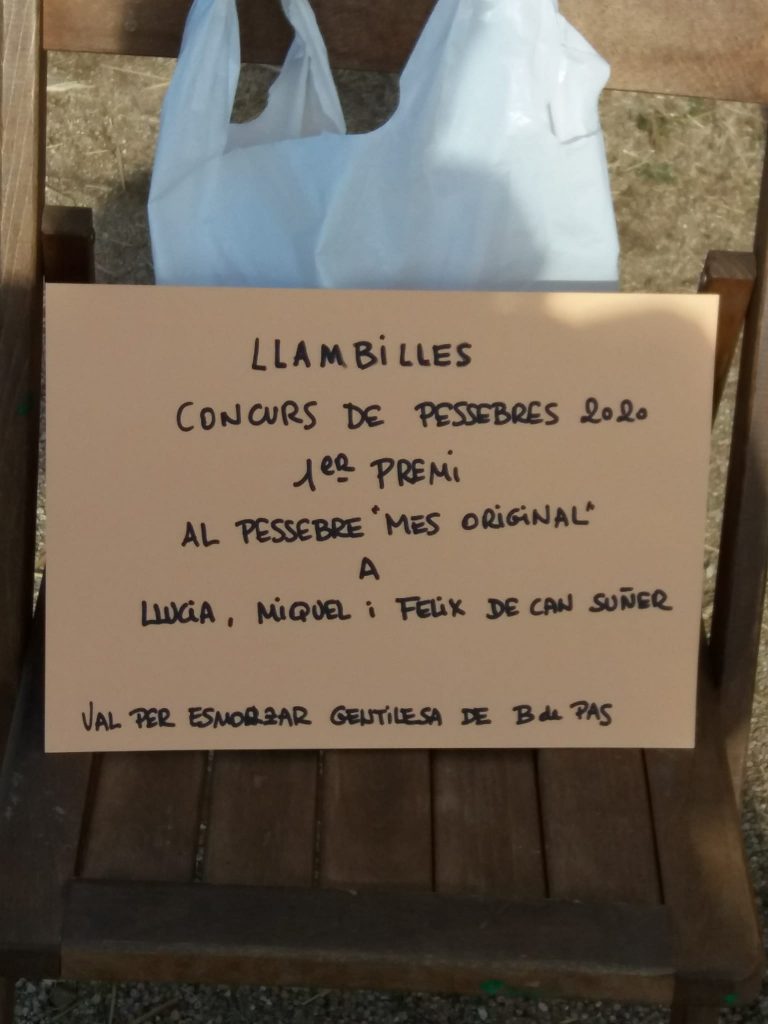 LLAMBILLES
CONCURS DE PESSEBRES 2020
1er PREMI
AL PESSEBRE "MES ORIGINAL"
A
LLUCIA, MIQUEL i FELIX DE CAN SUÑER
VAL PER ESMORZAR GENTILESA DE B de PAS